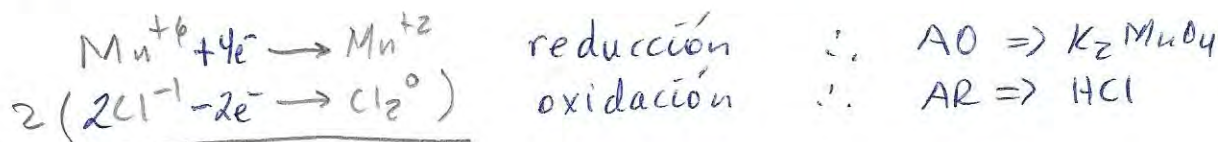 Mn⁺⁶ + 4e⁻ → Mn⁺² reducción ∴ AO => K₂MnO₄
2(2Cl⁻¹ - 2e⁻ → Cl₂⁰) oxidación ∴ AR => HCl